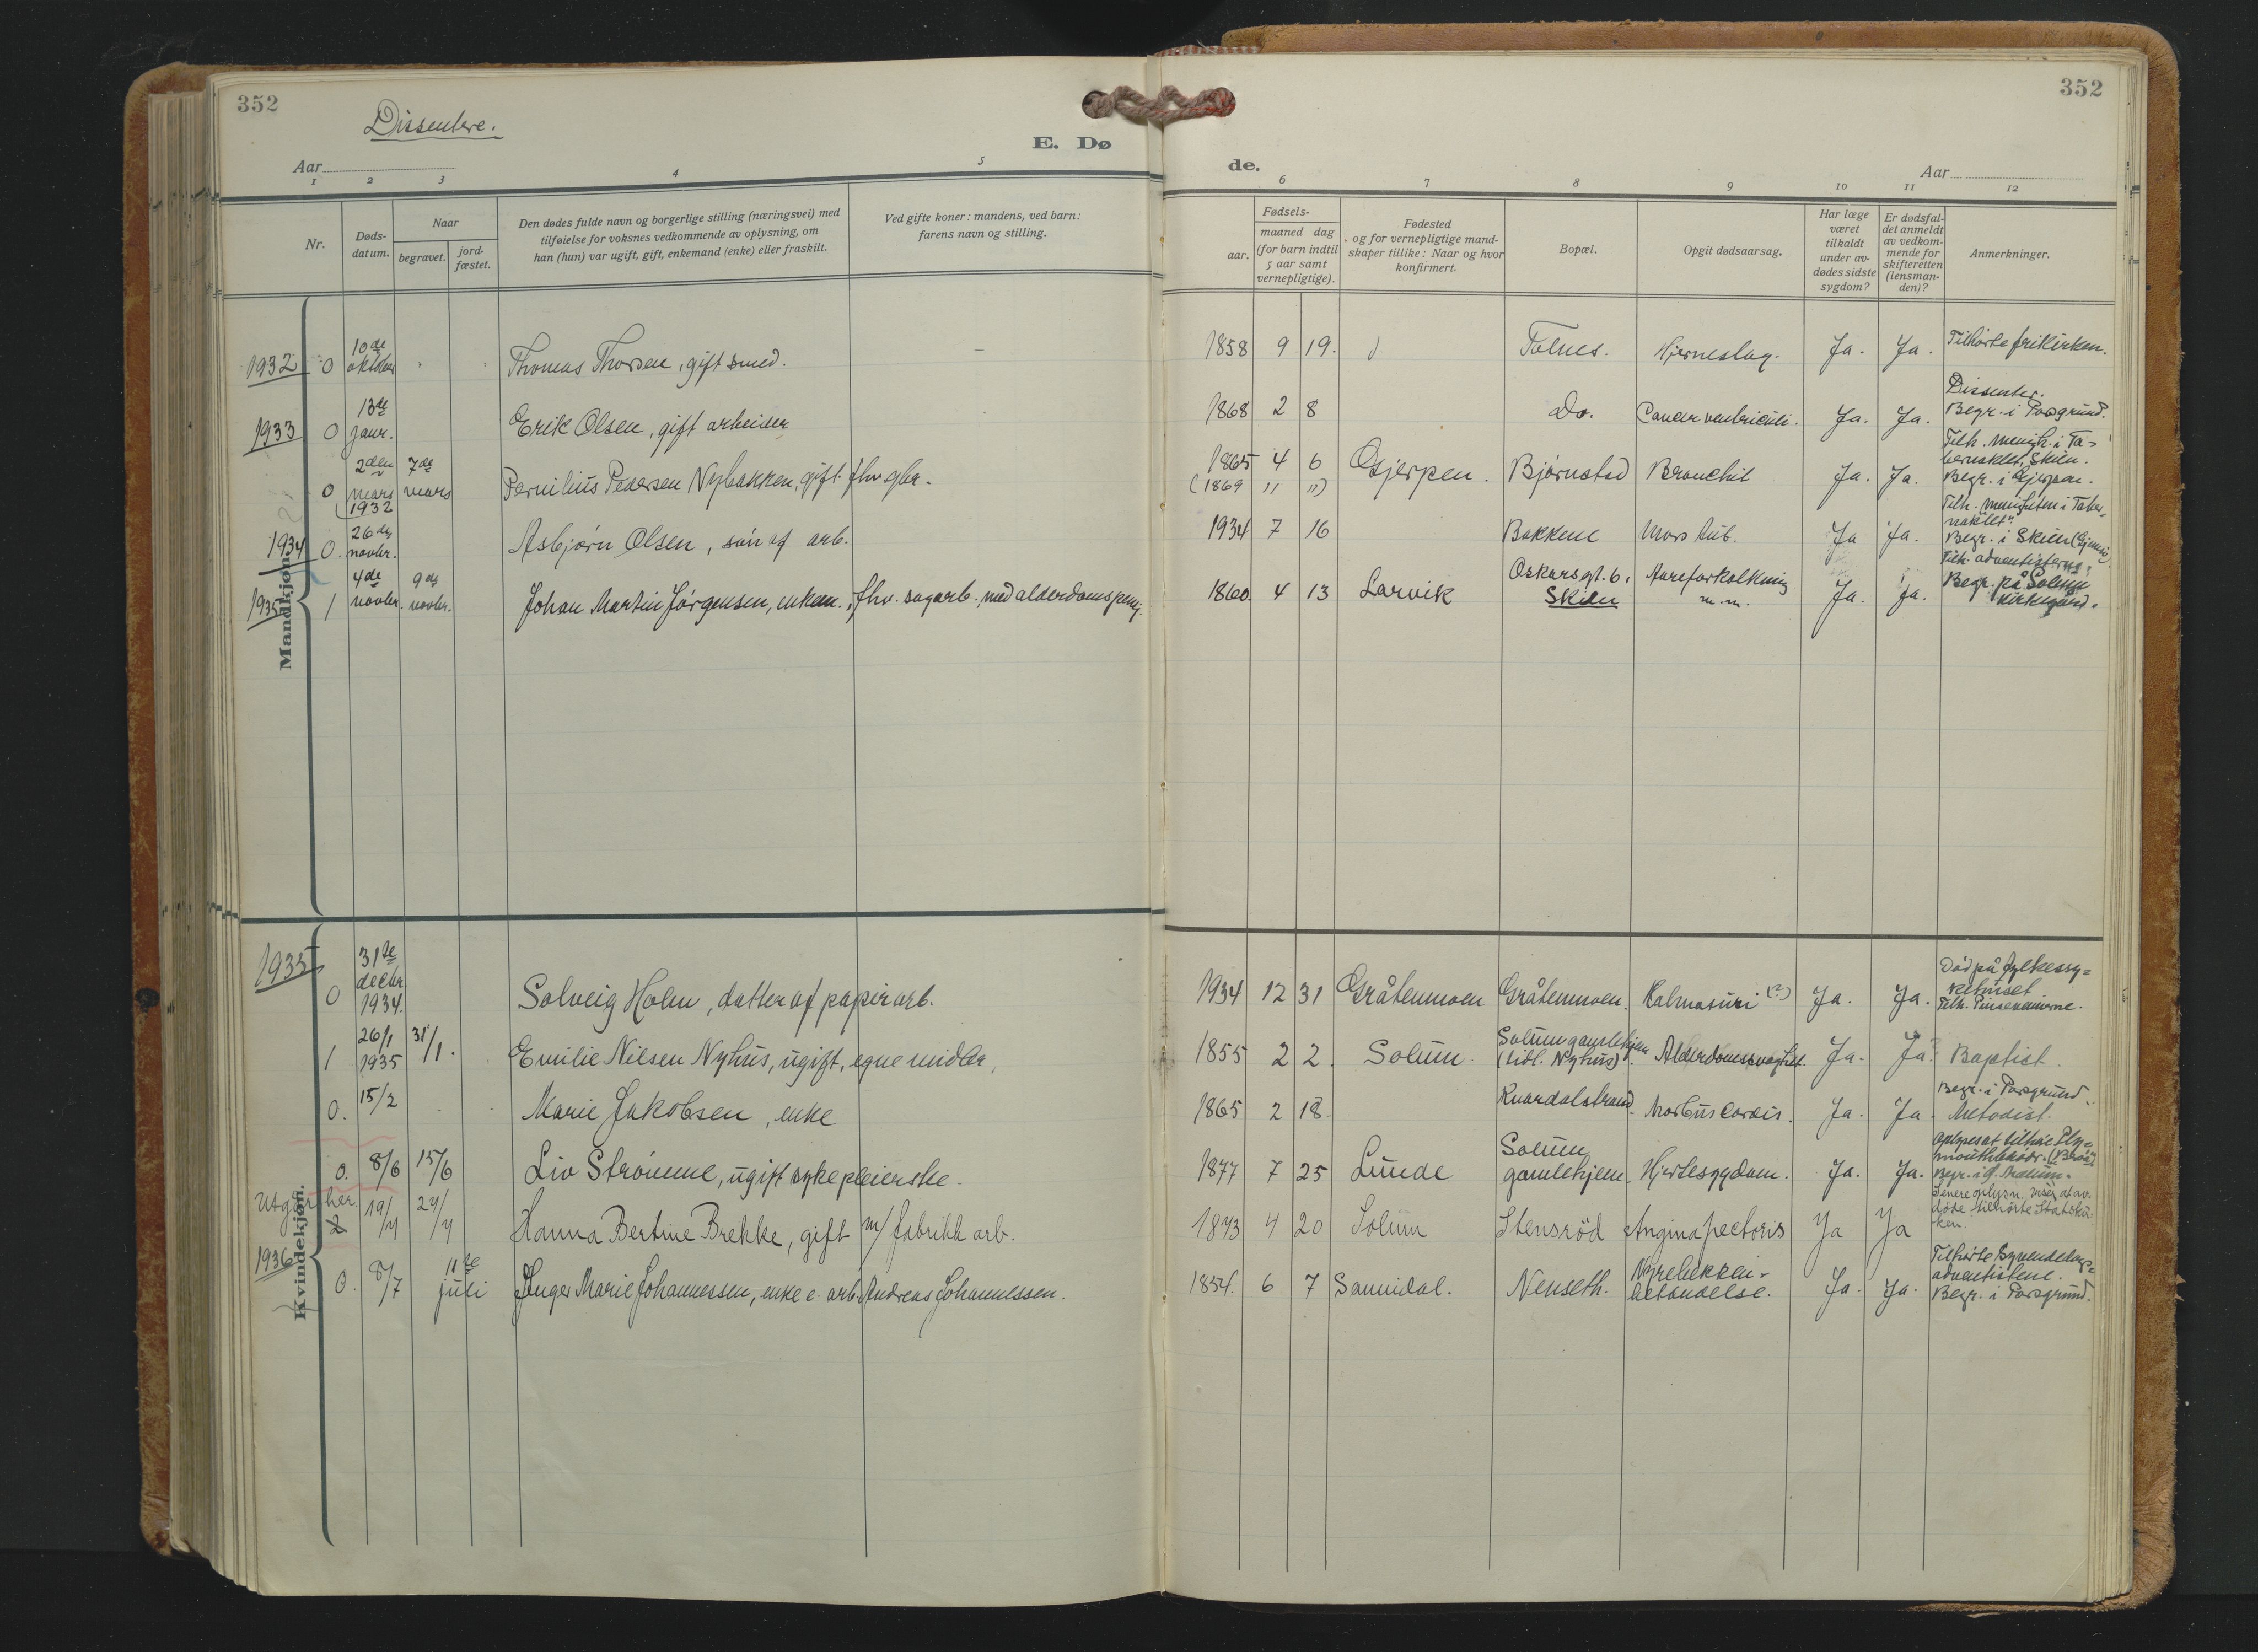 352
Dissentere.
E. Dø
Aar
1 2 3 4 5
Nr.
Døds-
datum.
Naar
begravet.
jord-
fæstet.
Den dødes fulde navn og borgerlige stilling (næringsvei) med
tilføielse for voksnes vedkommende av oplysning, om
han (hun) var ugift, gift, enkemand (enke) eller fraskilt.
Ved gifte koner: mandens, ved barn:
farens navn og stilling.
Mandkjøn.
1932 0 10de oktober Thomas Thorsen, gift smed. —
1933 0 13de janr. Erik Olsen, gift arbeider
0 2den mars (1932 7de mars Pernilius Pedersen Nybakken, gift fhv. gbr.
1934 0. 26de novbr. Asbjørn Olsen, søn af arb.
1935 1 4de novbr. 9de novbr. Johan Martin Jørgensen, enkem., fhv. sagarb. med alderdomspeng.
Kvindekjøn.
1935 0 31te decbr 1934. Solveig Holm, datter af papirarb.
1 26/1 1935 31/1. Emilie Nilsen Nyhus, ugift, egne midler,
0. 15/2 Marie Jakobsen, enke
0. 8/6 15/6 Liv Strømme, ugift sykepleierske
Utgår her.
2 19/4 24/4 Hanna Bertine Brekke, gift m/ fabrikk arb.
1936 0. 8/7 11te juli Inger Marie Johannessen, enke e. arb. Andreas Johannessen.
352
de.
Aar
6 7 8 9 10 11 12
aar.
Fødsels-
maaned dag
(for barn indtil
5 aar samt
vernepligtige).
Fødested
og for vernepligtige mand-
skaper tillike: Naar og hvor
konfirmert.
Bopæl.
Opgit dødsaarsag.
Har læge
været
tilkaldt
under av-
dødes sidste
sygdom?
Er dødsfal-
det anmeldt
av vedkom-
mende for
skifteretten
(lensman-
den)?
Anmerkninger.
1858 9 19. Tolnes. Hjerneslag. Ja. Ja. Tilhørte frikirken.
1868 2 8 Do. Cancer ventriculi. Ja. Ja. Dissenter.
Begr. i Porsgrund.
1865 4 6 Gjerpen. Bjørnstad Bronchit Ja. Ja. Tilh. menigh. i Ta-
bernaklet, Skien.
Begr. i Gjerpen.
(1869 " ")
1934 7 16 Bakkene Mors sub. Ja Ja. Tilh. menigheten i Taber-
naklet".
Begr. i Skien
1860. 4 13 Larvik Oskarsgt. 6, Skien Aareforkalkning m.m. Ja. Ja. Tilh. adventisterne.
Begr. på Solum
kirkegård.
1934 12 31 Gråtenmoen Gråtenmoen. (?) Ja. Ja. Død på fylkessy-
kehuset
Tilh. Pinsevennerne.
1855 2 2. Solum. Solum gamlehjem (tidl. Nyhus). Alderdomssvaghet. Ja. Ja Baptist.
1865 2 18. Knardalstrand. Morbus cordis. Ja. Ja. Begr. i Porsgrund.
Metodist.
1877 7 25 Lunde Solum gamlehjem. Hjertesygdom. Ja. Ja. Oplyses at tilhøre Ply-
mouthbrødr.
1873 4 20 Solum Stensrød Angina pectoris Ja Ja Senere oplysn. viser at av-
døde tilhørte Statskir-
ken.
1854. 6 7 Sannidal. Nenseth. Nyrebekken-
betændelse. Ja. Ja. Tilhørte Syvendedags-
adventistene.
Begr. i Porsgrund.